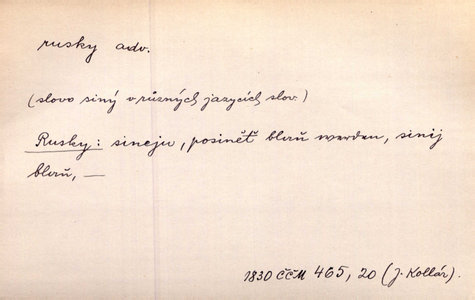 rusky adv.
(slovo siný v různých jazycích slov.)
Rusky: sineju, posinět' blau werden, sinij
blau, —
1830 ČČM 465, 20 (J. Kollár).